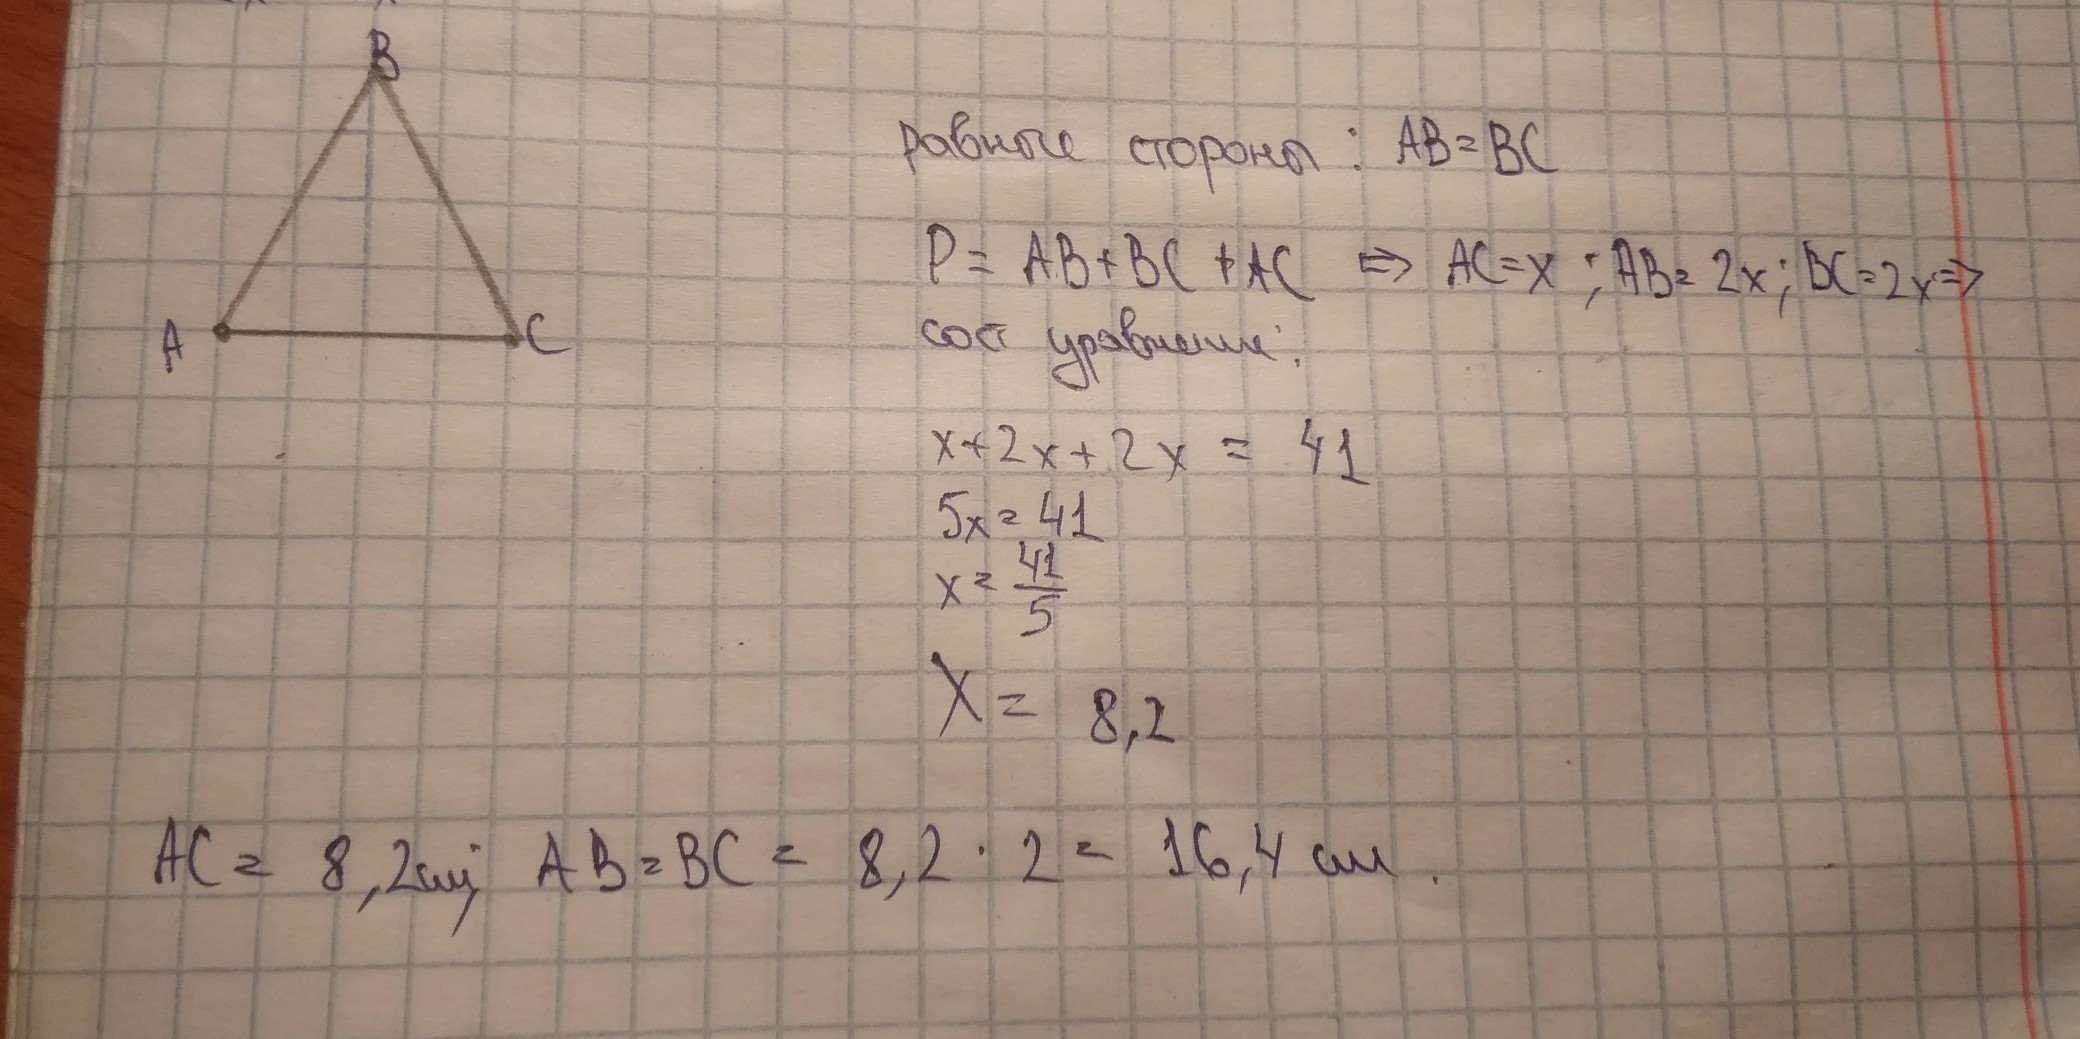 B
A
C
равные стороны : AB=BC
P= AB+BC+AC => AC=x ; AB=2x; BC=2x=>
сост уравнение:
x+2x+2x = 41
5x=41
x=41/5
X= 8,2
AC= 8,2см; AB=BC= 8,2·2= 16,4 см.